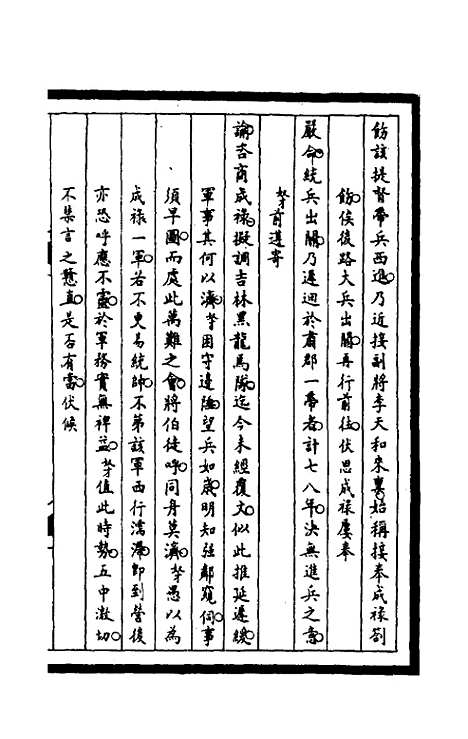 飭該提督帶兵西進乃近接副將李天和來稟始稱接奉成祿劄
飭俟後路大兵出關再行前往伏思成祿屢奉
嚴命統兵出關乃遲迴於肅郡一帶者計七八年決無進兵之意
奴才前遵寄
諭咨商成祿擬調吉林黑龍馬隊迄今未經覆文似此推延遲緩
軍事其何以濟奴才困守邊陲望兵如歲明知強鄰窺伺事
須早圖而處此萬難之會將伯徒呼同舟莫濟奴才愚以為
成祿一軍若不更易統帥不第該軍西行濡滯即到營後
亦恐呼應不靈於軍務實無裨益奴才值此時勢五中激切
不禁言之戇直是否有當伏候